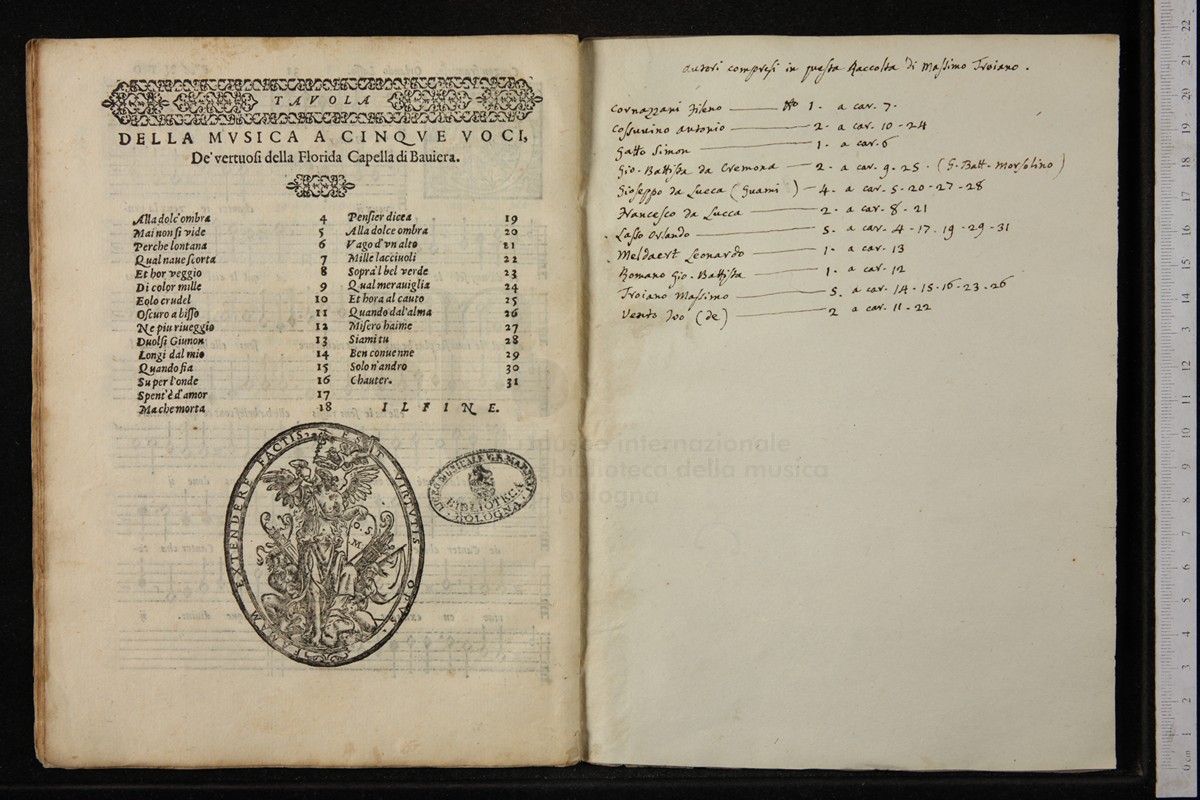 TAVOLA
DELLA MVSICA A CINQVE VOCI,
De' vertuosi della Florida Capella di Baviera.
Alla dolc'ombra 4
Mai non si vide 5
Perche lontana 6
Qual naue scorta 7
Et hor veggio 8
Di color mille 9
Eolo crudel 10
Oscuro abisso 11
Ne piu riueggio 12
Duolsi Giunon 13
Longi dal mio 14
Quando fia 15
Su per l'onde 16
Spent'è d'amor 17
Ma che morta 18
Pensier dicea 19
Alla dolce ombra 20
Vago d'vn alto 21
Mille lacciuoli 22
Sopra'l bel verde 23
Qual merauiglia 24
Et hora al cauto 25
Quando dal'alma 26
Misero haime 27
Siami tu 28
Ben conuenne 29
Solo n'andro 30
Chauter. 31
IL FINE.
FAMAM EXTENDERE FACTIS, EST VIRTVTIS OPVS.
O. S.
M.
LICEO MUSICALE G.B. MARTINI
BIBLIOTECA
BOLOGNA
Autori compresi in questa Raccolta di Massimo Troiano.
Cornazzani Fileno — No 1. a car. 7.
Cossuvino Antonio — 2. a car. 10 - 24
Gatto Simon — 1. a car. 6
Gio. Battista da Cremona — 2. a car. 9 - 25. (G. Batt. Morsolino)
Gioseppo da Lucca (Guami) — 4. a car. 5 - 20 - 27 - 28
Francesco da Lucca — 2. a car. 8 - 21
Lasso Orlando — 5. a car. 4 - 17. 19 - 29 - 31
Meldaert Leonardo — 1. a car. 13
Romano Gio. Battista — 1. a car. 12
Troiano Massimo — 5. a car. 14 - 15 - 16 - 23 - 26
Vento Ivo (de) — 2 a car. 11 - 22
museo internazionale
e biblioteca della musica
bologna
22
21
20
19
18
17
16
15
14
13
12
11
10
9
8
7
6
5
4
3
2
1
0 cm